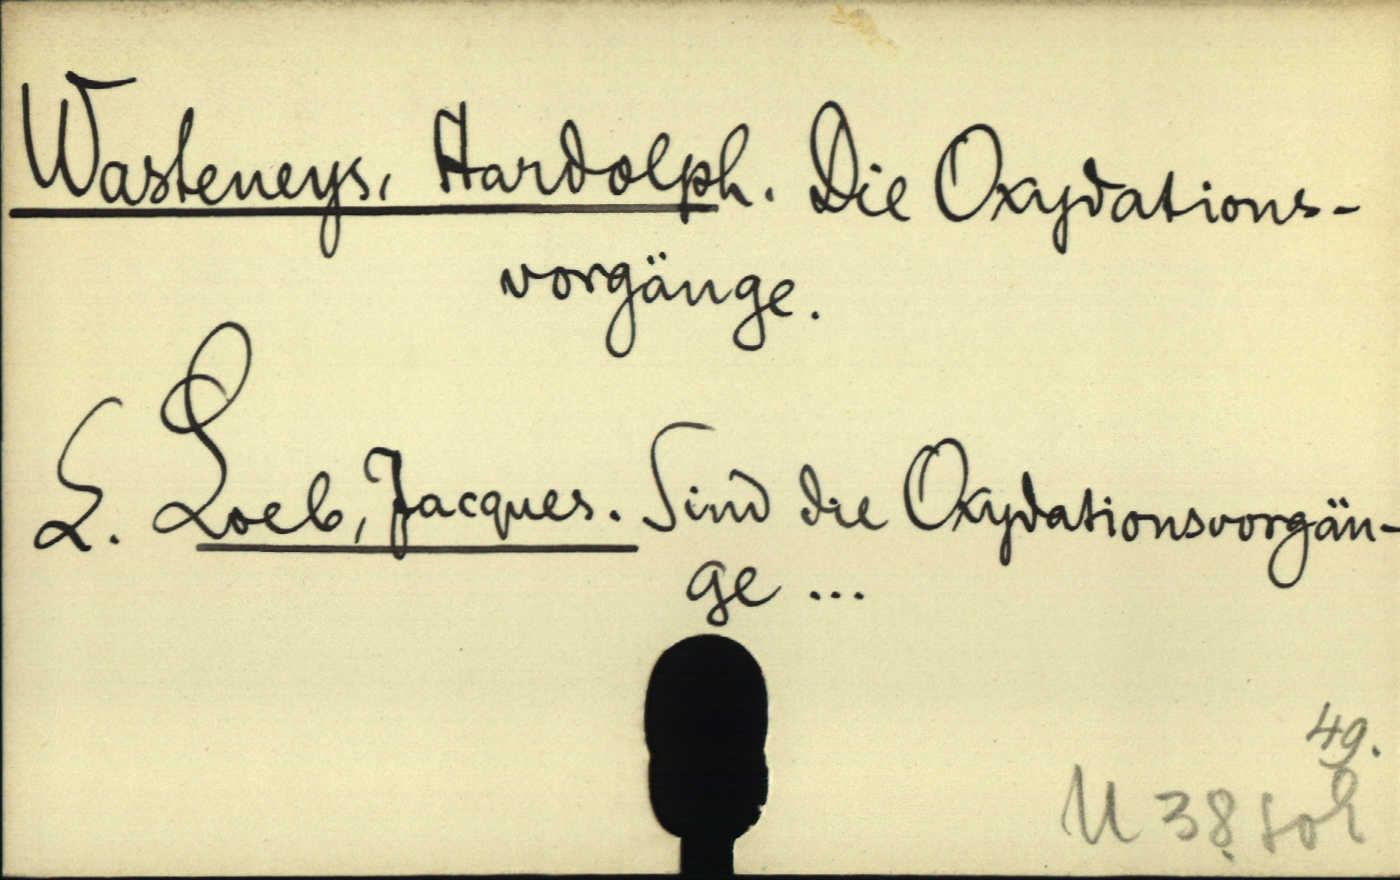 Wasteneys, Hardolph. Die Oxydations-
vorgänge.
S. Loeb, Jacques. Sind die Oxydationsvorgän-
ge ...
49.
U 38